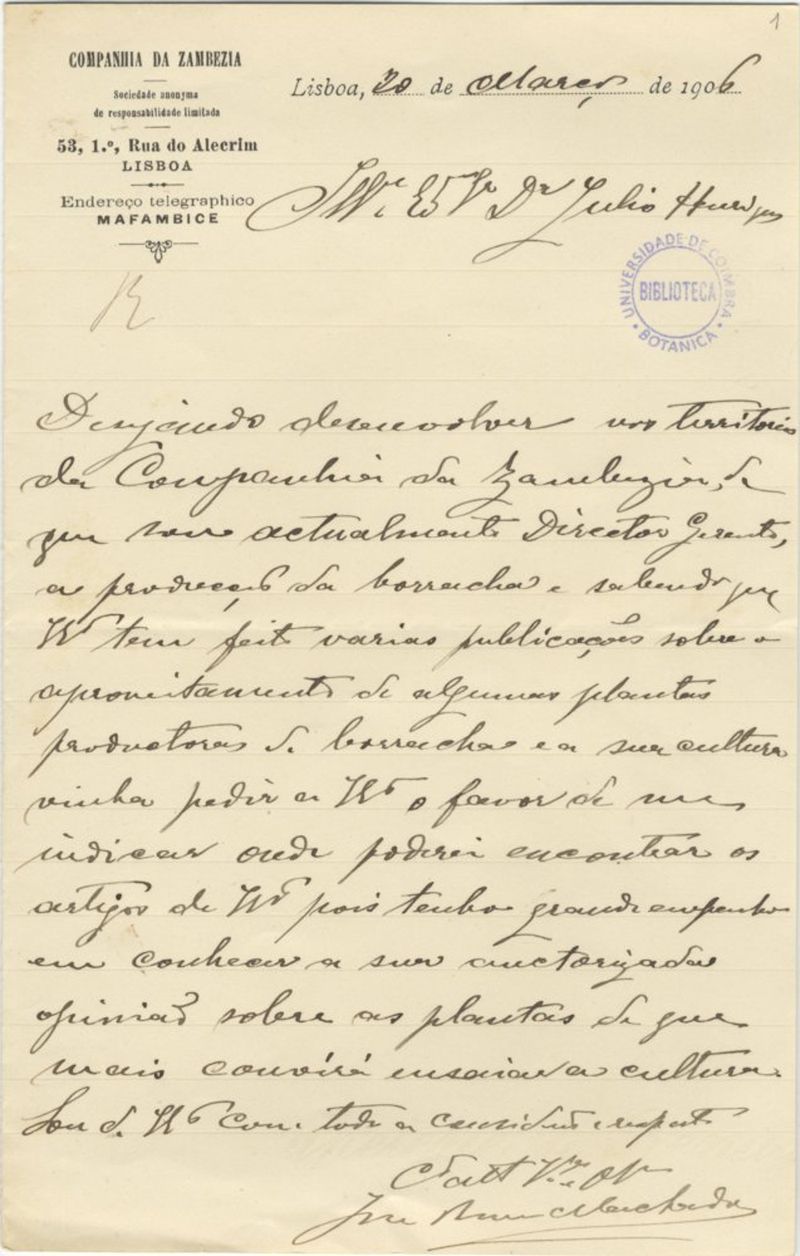 1
COMPANHIA DA ZAMBEZIA
Sociedade anonyma
de responsabilidade limitada
53, 1.º, Rua do Alecrim
LISBOA
Endereço telegraphico
MAFAMBICE
Lisboa, 20 de Março de 1906
Dr Julio Henriques
R
UNIVERSIDADE DE COIMBRA
BIBLIOTECA
BOTANICA
Desejando desenvolver nos territorios
da Companhia da Zambezia, de
que sou actualmente Director Gerente,
a producção da borracha e sabendo que
VEª tem feito varias publicações sobre o
aproveitamento de algumas plantas
productoras de borracha e a sua cultura
vinha pedir a VEª o favor de me
indicar onde poderei encontrar os
artigos de VEª pois tenho grande empenho
em conhecer a sua auctorizada
opinião sobre as plantas de que
mais convirá ensaiar a cultura.
Sou de VEª com toda a consideração e respeito
Machado